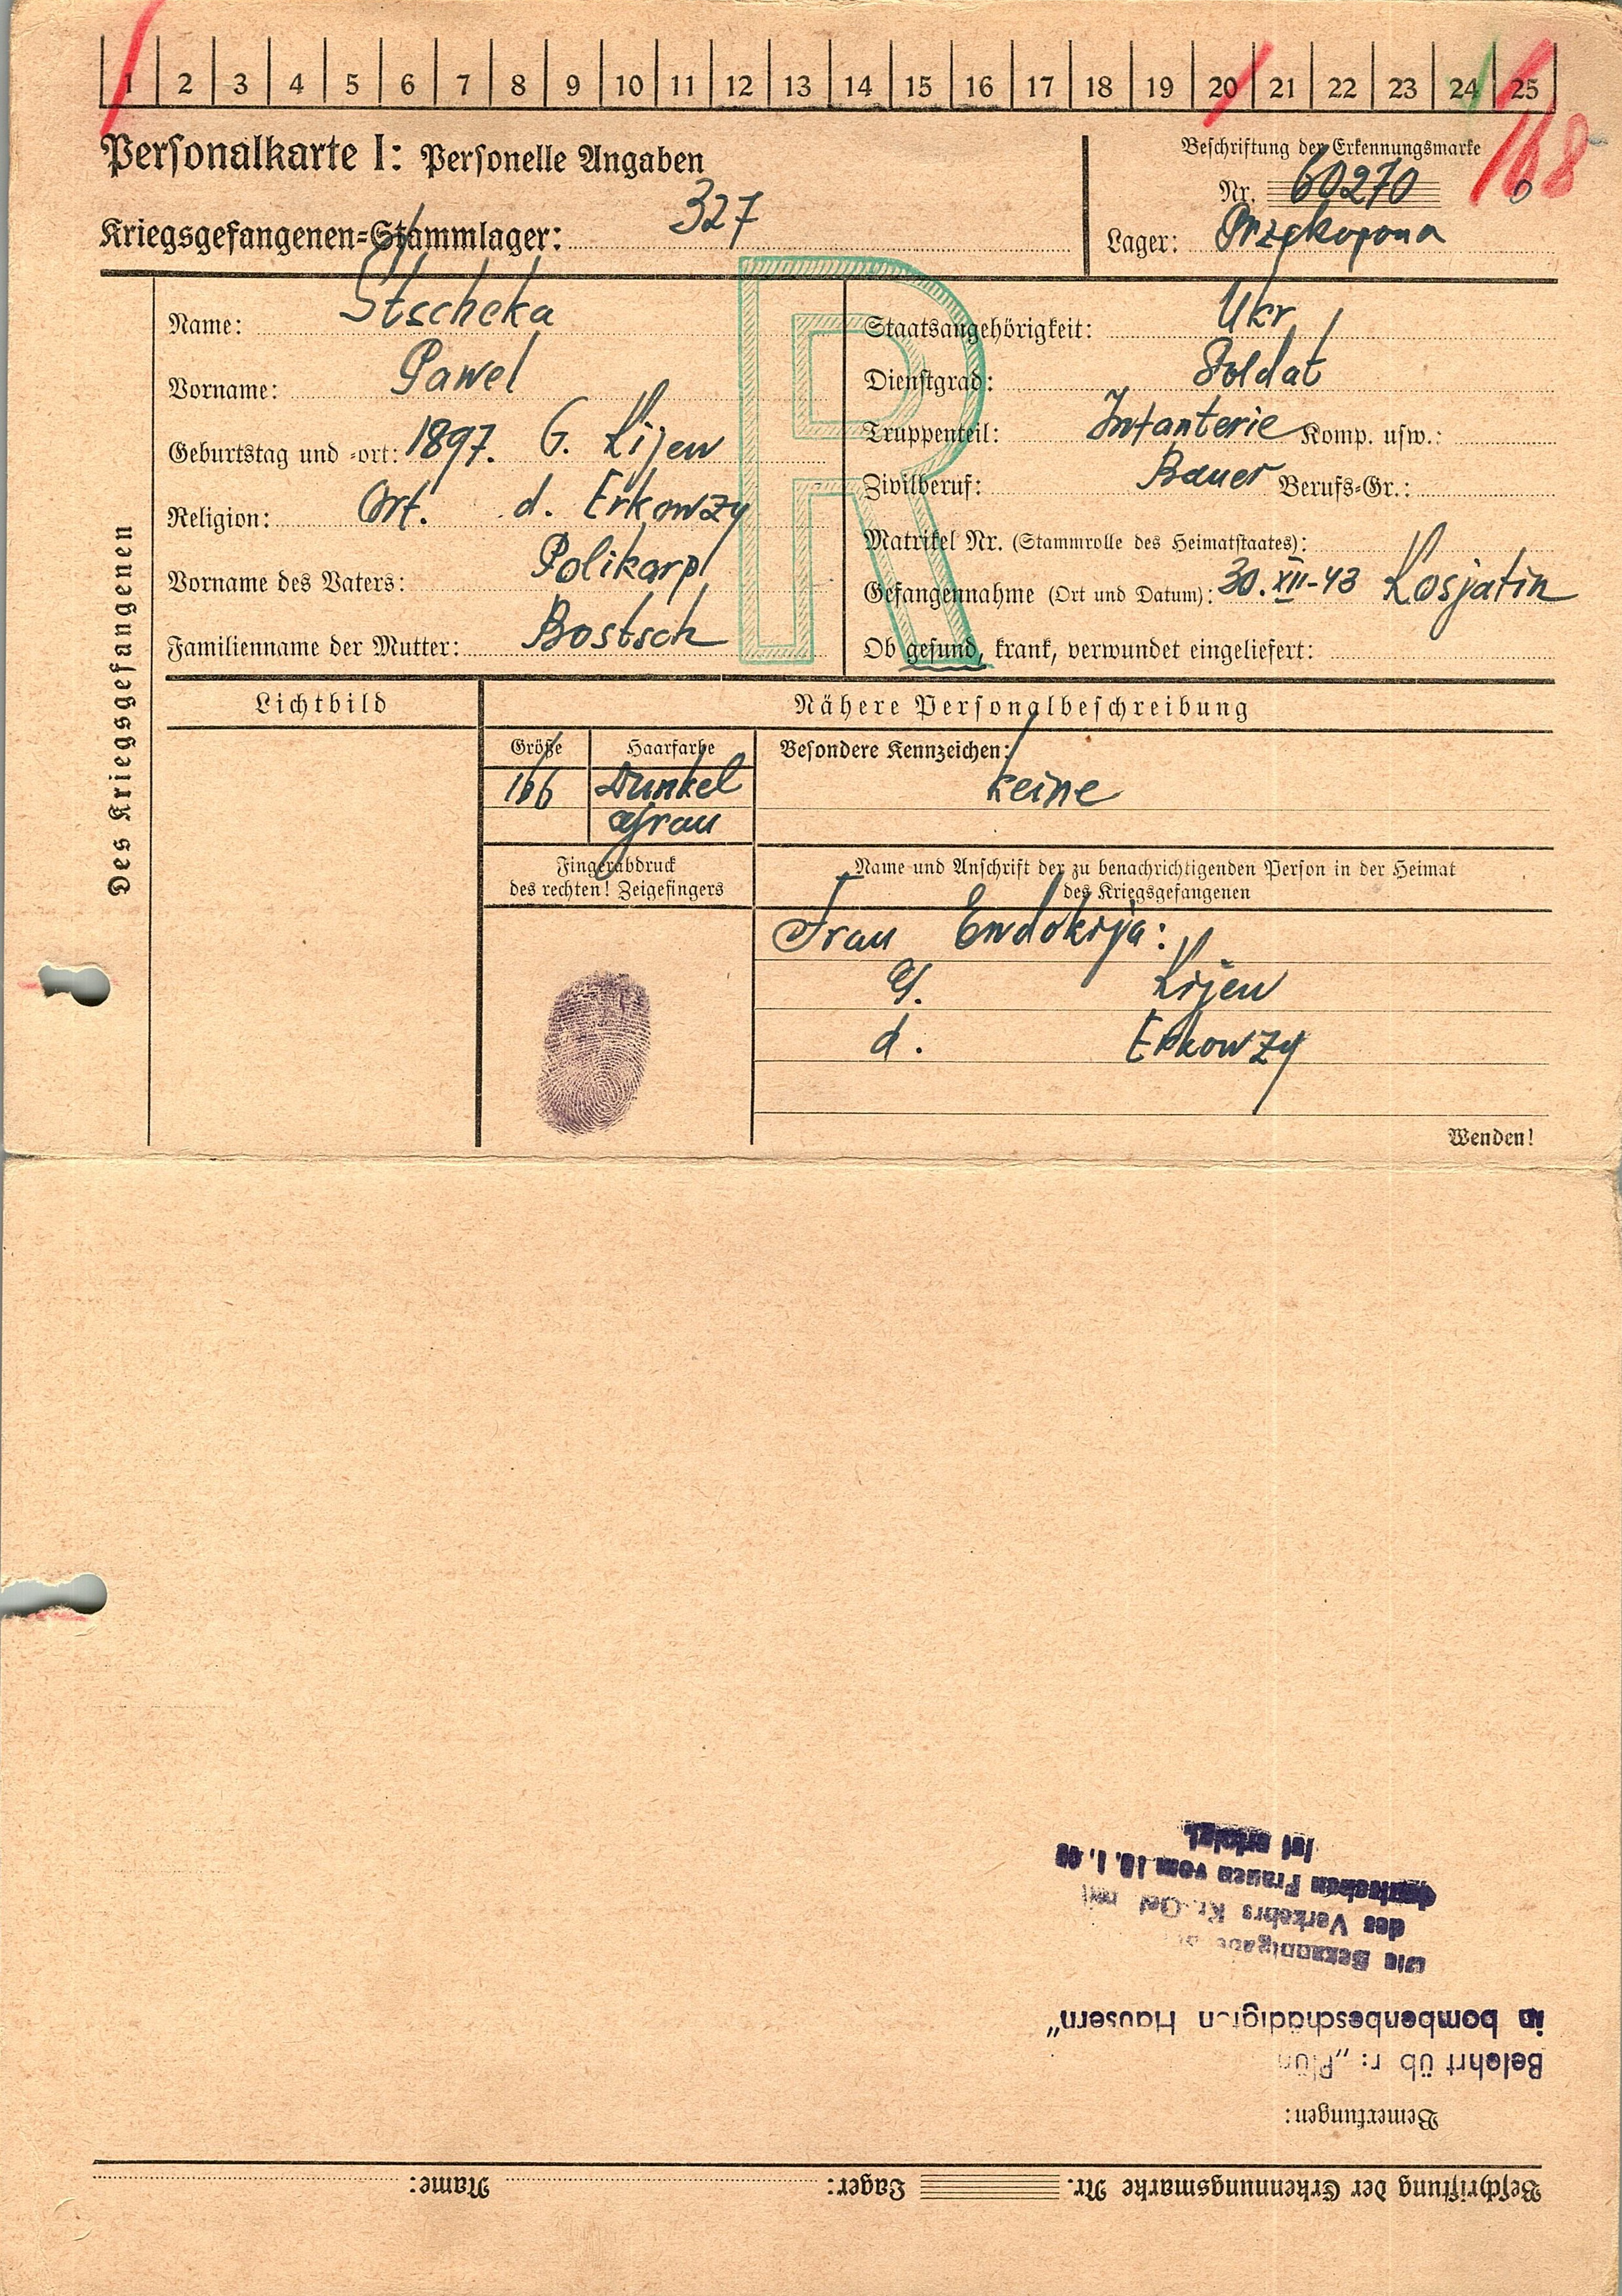 1 2 3 4 5 6 7 8 9 10 11 12 13 14 15 16 17 18 19 20 21 22 23 24 25
168
Personalkarte I: Personelle Angaben
Beschriftung der Erkennungsmarke
Nr. 60270
Kriegsgefangenen-Stammlager: 327
Lager: Przekopona
Des Kriegsgefangenen
R
Name: Stscheka
Vorname: Pawel
Geburtstag und -ort: 1897. G. Kijew
Religion: Ort. d. Erkowzy
Vorname des Vaters: Polikarp
Familienname der Mutter: Bostsch
Staatsangehörigkeit: Ukr
Dienstgrad: Soldat
Truppenteil: Infanterie Komp. usw.:
Zivilberuf: Bauer Berufs-Gr.:
Matrikel Nr. (Stammrolle des Heimatstaates):
Gefangennahme (Ort und Datum): 30. XII-43 Kosjatin
Ob gesund, krank, verwundet eingeliefert:
Lichtbild
Nähere Personalbeschreibung
Größe Haarfarbe Besondere Kennzeichen:
166 Dunkel keine
Grau
Fingerabdruck
des rechten! Zeigefingers
Name und Anschrift der zu benachrichtigenden Person in der Heimat
des Kriegsgefangenen
Frau Ewdokija:
G. Kijew
d. Erkowzy
Wenden!
Beschriftung der Erkennungsmarke Nr. Lager: Name:
Bemerkungen:
Belehrt üb r: „Plün
in bombenbeschädigten Häusern"
Die Bekanntgabe
des Verkehrs Kr.-Gef mit
deutschen Frauen vom
ist erfolgt.